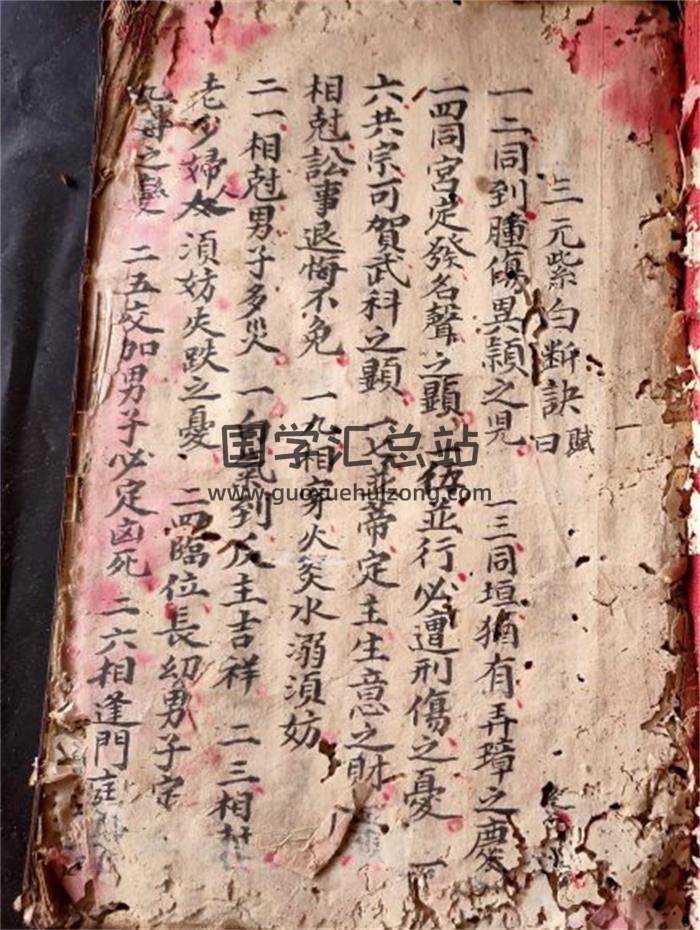 三元紫白断訣賦曰
一二同到腫傷異頴之児 一三同垣猶有弄璋之慶
一四同宮定發名聲之顕 一伍並行必遭刑傷之憂 一
六共宗可賀武科之顕 一七並蒂定主生意之財
相尅訟事退悔不免 一九相穿火災水溺須妨
二一相尅男子多災 一到反主吉祥 二三相
老少婦人須妨失跌之憂 二四臨位長幼男子定
之變 二五交加男子必定凶死 二六相逢門庭
国学汇总站
www.guoxuehuizong.com